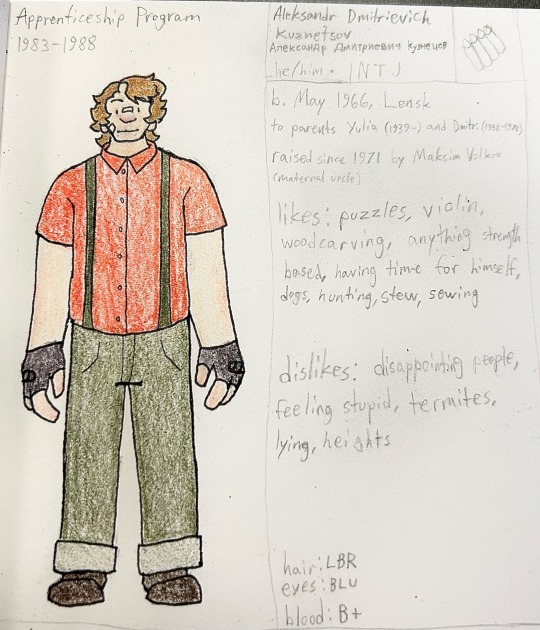 Apprenticeship Program
1983-1988
Aleksandr Dmitrievich
Kuznetsov
Александр Дмитриевич Кузнецов
he/him · INTJ
b. May 1966, Lensk
to parents Yulia (1939-) and Dmitri
raised since 1971 by Maksim Volkov
(maternal uncle)
likes: puzzles, violin,
woodcarving, anything strength
based, having time for himself,
dogs, hunting, stew, sewing
dislikes: disappointing people,
feeling stupid, termites,
lying, heights
hair: LBR
eyes: BLU
blood: B+